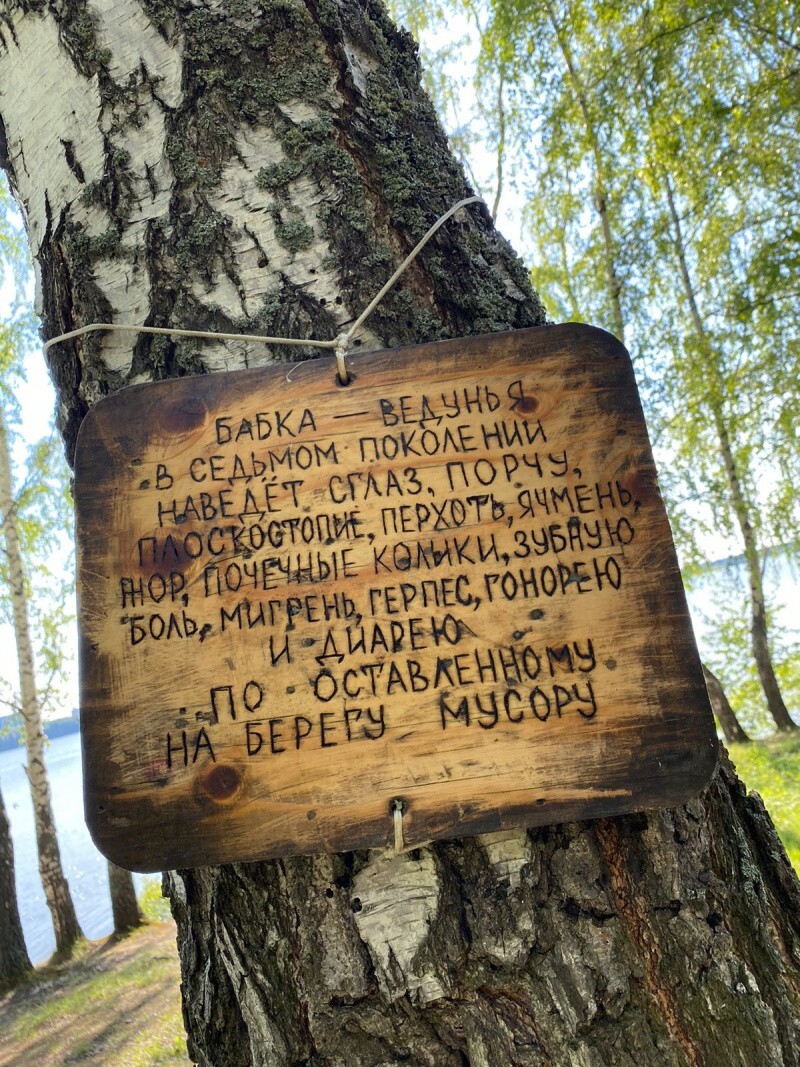 БАБКА — ВЕДУНЬЯ
В СЕДЬМОМ ПОКОЛЕНИИ
НАВЕДЁТ СГЛАЗ, ПОРЧУ,
ПЛОСКОСТОПИЕ, ПЕРХОТЬ, ЯЧМЕНЬ,
ЖОР, ПОЧЕЧНЫЕ КОЛИКИ, ЗУБНУЮ
БОЛЬ, МИГРЕНЬ, ГЕРПЕС, ГОНОРЕЮ
И ДИАРЕЮ
ПО ОСТАВЛЕННОМУ
НА БЕРЕГУ МУСОРУ